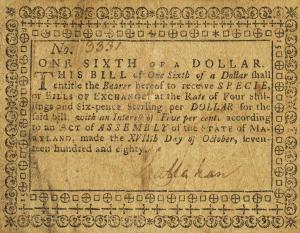 No. 3331
ONE SIXTH OF A DOLLAR.
THIS BILL of One Sixth of a Dollar shall
entitle the Bearer hereof to receive SPECIE,
or BILLS OF EXCHANGE, at the Rate of Four shil-
lings and Six-pence Sterling per DOLLAR for the
said Bill, with an Interest of Four per cent. according
to an ACT OF ASSEMBLY of the STATE OF MA-
RYLAND, made the XVIIth Day of October, seven-
teen hundred and eighty.
Callahan